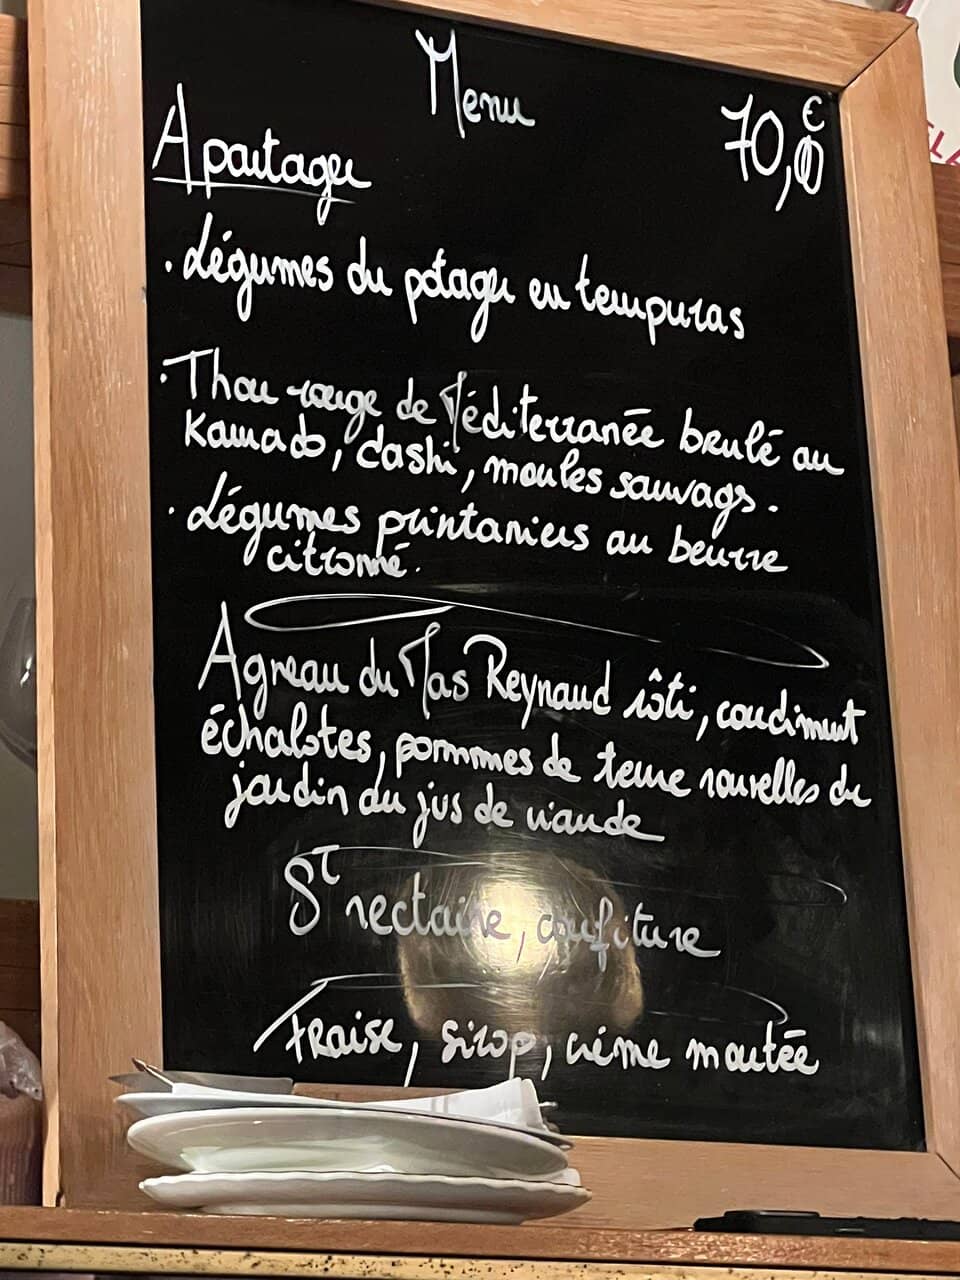 Menu
70,00 €
A partager
. Légumes du potager en tempuras
. Thon rouge de Méditerranée brulé au
Kamado, dashi, moules sauvags.
. Légumes printaniers au beurre
citronné.
Agneau du Mas Reynaud rôti, condiment
échalotes, pommes de terre nouvelles du
jardin au jus de viande
St nectaire, confiture
Fraise, sirop, crème montée